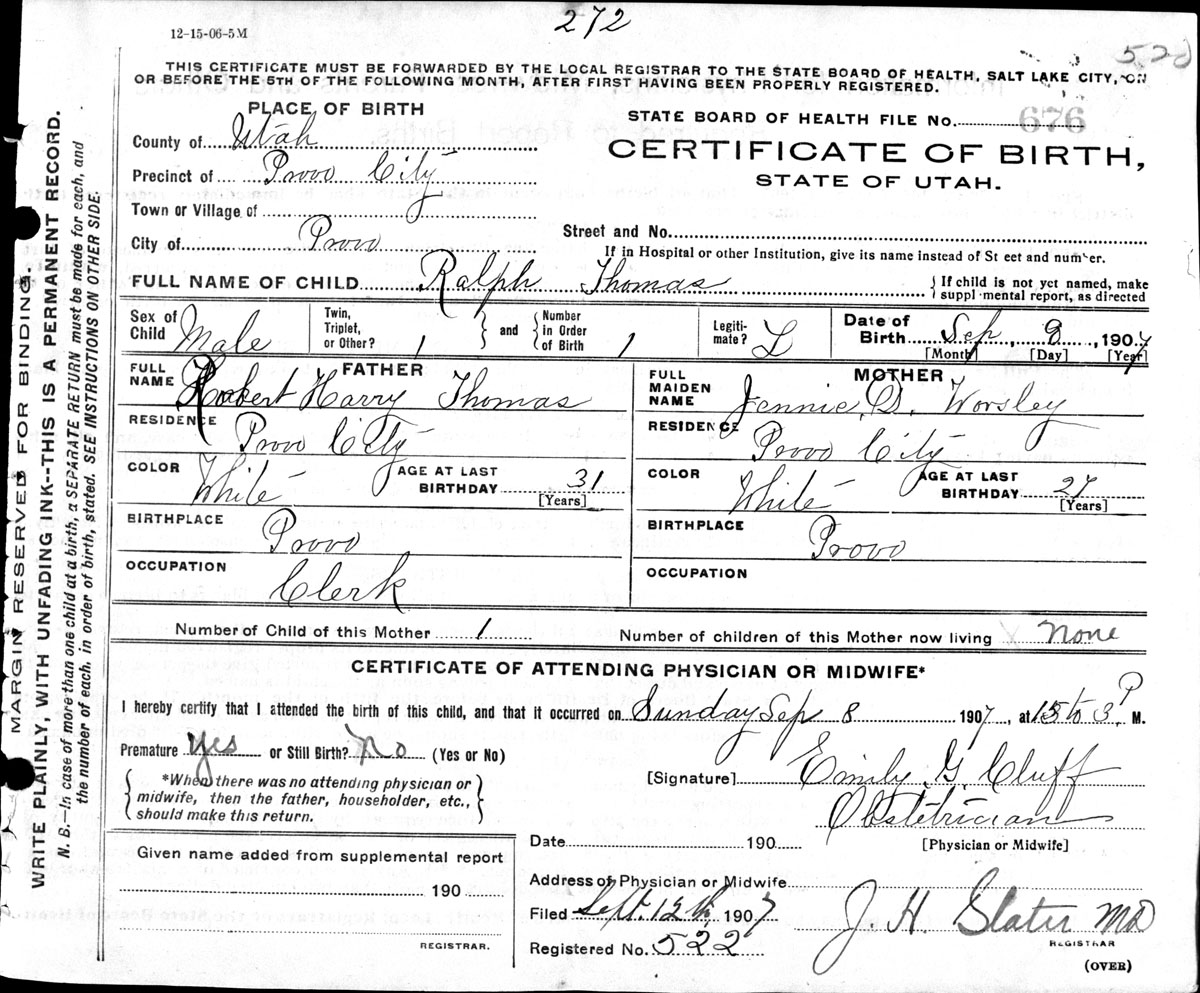 272
12-15-06-5M
THIS CERTIFICATE MUST BE FORWARDED BY THE LOCAL REGISTRAR TO THE STATE BOARD OF HEALTH, SALT LAKE CITY, ON
OR BEFORE THE 5TH OF THE FOLLOWING MONTH, AFTER FIRST HAVING BEEN PROPERLY REGISTERED.
PLACE OF BIRTH
County of Utah
Precinct of Provo City
Town or Village of
City of Provo
STATE BOARD OF HEALTH FILE No. 676
CERTIFICATE OF BIRTH,
STATE OF UTAH.
Street and No.
If in Hospital or other Institution, give its name instead of St eet and number.
FULL NAME OF CHILD Ralph Thomas
If child is not yet named, make
suppl mental report, as directed
Sex of Child Male
Twin, Triplet, or Other? 1 and Number in Order of Birth 1
Legiti-mate? L
Date of Birth Sep, 8, 1907
[Month] [Day] [Year]
FATHER
FULL NAME Robert Harry Thomas
RESIDENCE Provo City
COLOR White AGE AT LAST BIRTHDAY 31
[Years]
BIRTHPLACE Provo
OCCUPATION Clerk
MOTHER
FULL MAIDEN NAME Jennie D. Worsley
RESIDENCE Provo City
COLOR White AGE AT LAST BIRTHDAY 27
[Years]
BIRTHPLACE Provo
OCCUPATION
Number of Child of this Mother 1 Number of children of this Mother now living none
CERTIFICATE OF ATTENDING PHYSICIAN OR MIDWIFE*
I hereby certify that I attended the birth of this child, and that it occurred on Sunday Sep 8 1907, at 15 to 3 P M.
Premature Yes or Still Birth? No (Yes or No)
*When there was no attending physician or
midwife, then the father, householder, etc.,
should make this return.
[Signature] Emily G. Cluff
Obstetrician
[Physician or Midwife]
Given name added from supplemental report
190
REGISTRAR.
Date 190
Address of Physician or Midwife
Filed Sept. 12th 1907
Registered No. 522
J. H. Slater MD
REGISTRAR
(OVER)
MARGIN RESERVED FOR BINDING.
WRITE PLAINLY, WITH UNFADING INK--THIS IS A PERMANENT RECORD.
N. B.—In case of more than one child at a birth, a SEPARATE RETURN must be made for each, and
the number of each, in order of birth, stated. SEE INSTRUCTIONS ON OTHER SIDE.